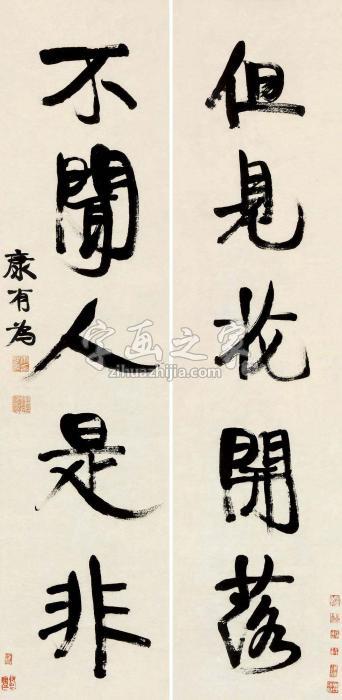 但見花開落
不聞人是非
康有為
字画之家
zihuazhijia.com